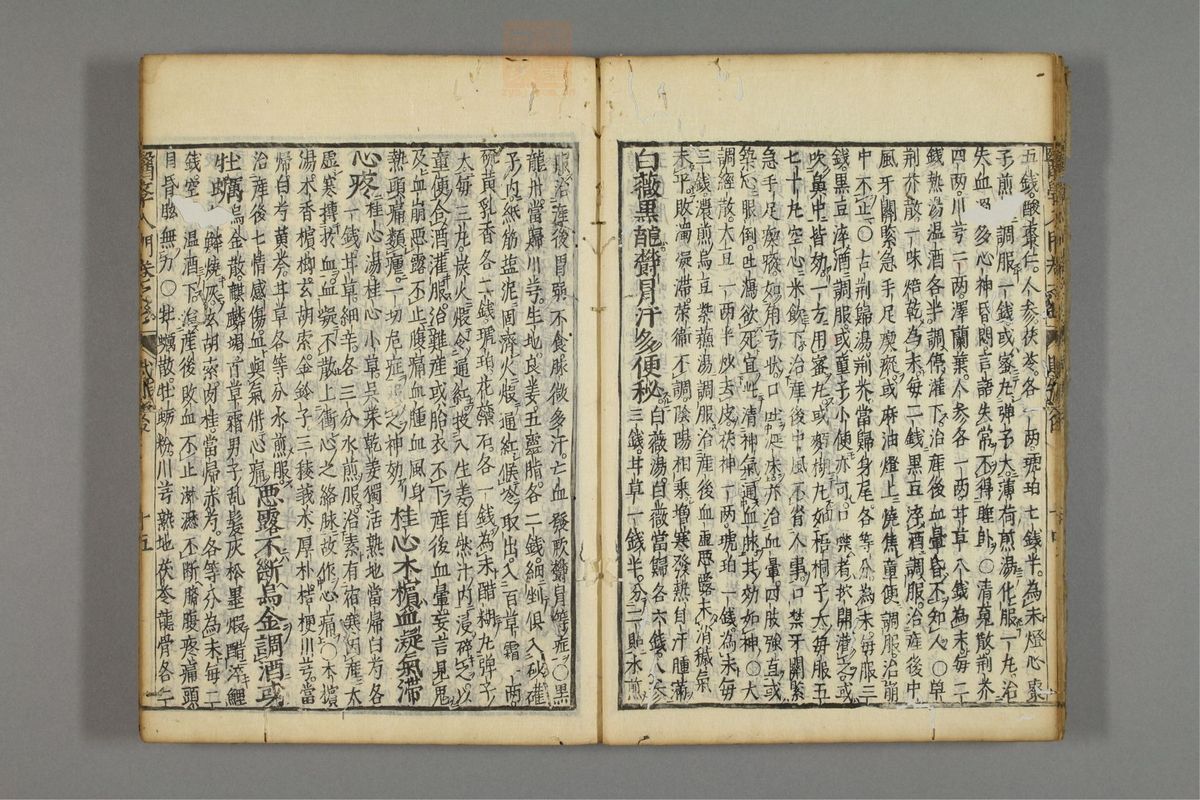 五錢酸棗仁。人參茯苓各一兩琥珀七錢半。為末燈心棗
子煎湯調服一錢或蜜丸彈子大薄荷煎湯化服一丸。治
失血過多心神昏悶言語失常不得睡臥○清魂散荊芥
四兩。川芎二兩。澤蘭葉。人參各一兩甘草八錢為末。每二
錢熱湯溫酒各半調停灌下。治產後血暈昏不知人。○單
荊芥散一味焙乾為末每二錢黑豆淬酒調服。治產後中
風牙關緊急手足瘈瘲或麻油燈上燒焦童便調服治崩
中不止○古荊歸湯。荊芥當歸身尾各等分。為末每服三
錢黑豆淬酒調服或童子小便亦可。口噤者抉開灌之或
吹鼻中皆効。一方用蜜丸或麪糊丸如梧桐子大每服五
七十丸空心米飲下。治產後中風不省人事。口禁牙關緊
急手足瘈瘲如角弓狀口吐涎沫亦治血暈。四肢強直或
築心眼倒。吐瀉欲死宜此清神氣通血脉其効如神。○大
調經散。大豆一兩半炒去皮。茯神一兩。琥珀一錢為末每
三錢濃煎烏豆紫蘇湯調服治產後血虛惡露未消穢氣
未平敗血凝滯。榮衛不調陰陽相乘增寒發熱自汗腫滿
白薇黑龍欝冒汗多便秘 白薇湯。白薇當歸各六錢。人參
三錢。甘草一錢半。分二貼水煎
服治產後胃弱不食脉微多汗。亡血發欬欝冒等症。○黑
龍丹當歸川芎。生地。良姜五靈脂。各二錢細剉俱入砂礶
予內。紙筋盐泥固濟火煅通紅候冷取出。入百草霜一兩
硫黃乳香各二錢琥珀花蘂石。各一錢為末醋糊丸彈子
大。每二三丸。炭火煅令通紅投入生姜自然汁內。浸碎之以
童便合酒灌服。治難產或胎衣不下。產後血暈妄言見鬼
及血崩惡露不止。腹痛血腫血風身
熱頭痛類瘧。一切危症。之神効 桂心木檳血凝氣滯
心疼 桂心湯桂心小草吳茱乾姜獨活熟地當歸白芍各
一錢甘草。細辛。各三分水煎服。治素有宿寒因產。大
虛。寒搏於血。血凝不散上衝心之絡脉。故作心痛○木檳
湯木香檳榔玄胡索。金鈴子三稜莪朮厚朴桔梗川芎當
歸白芍黃芩。甘草各等分水煎服。
治產後七情感傷血與氣併心痛 惡露不斷烏金調酒或
牡蠣 烏金散麒麟竭百草霜男子乱髮灰松墨煅醋淬鯉
鱗燒灰玄胡索肉桂當歸赤芍。各等分為末每二
錢空心溫酒下。治產後敗血不止淋瀝不斷臍腹疼痛頭
目昏眩無力。○牡蠣散。牡蛎粉。川芎熟地茯苓龍骨各二
醫學入門卷之
十五